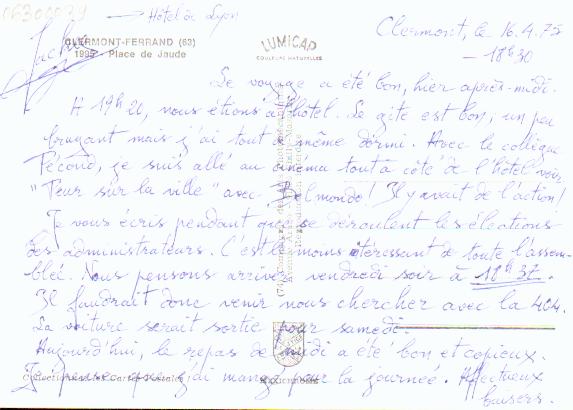 06300039
→ Hôtel de Lyon
Clermont, le 16.4.75
CLERMONT-FERRAND (63)
LUMICAP
- 18h30
Place de Jaude
COULEURS NATURELLES
Le voyage a été bon, hier après-midi.
A 19h20, nous étions à l'hôtel. Le gîte est bon, un peu
bruyant mais j'ai tout de même dormi. Avec le collègue
Pécond, je suis allé au cinéma tout à côté de l'hôtel voir
"Peur sur la ville" avec Belmondo! Il y avait de l'action!
Je vous écris pendant que se déroulent les élections
des administrateurs. C'est le moins intéressant de toute l'assem-
blée. Nous pensons arriver vendredi soir à 18h37.
Il faudrait donc venir nous chercher avec la 404.
La voiture serait sortie pour samedi.
Aujourd'hui, le repas de midi a été bon et copieux.
Je pense que j'ai mangé pour la journée. Affectueux
baisers.